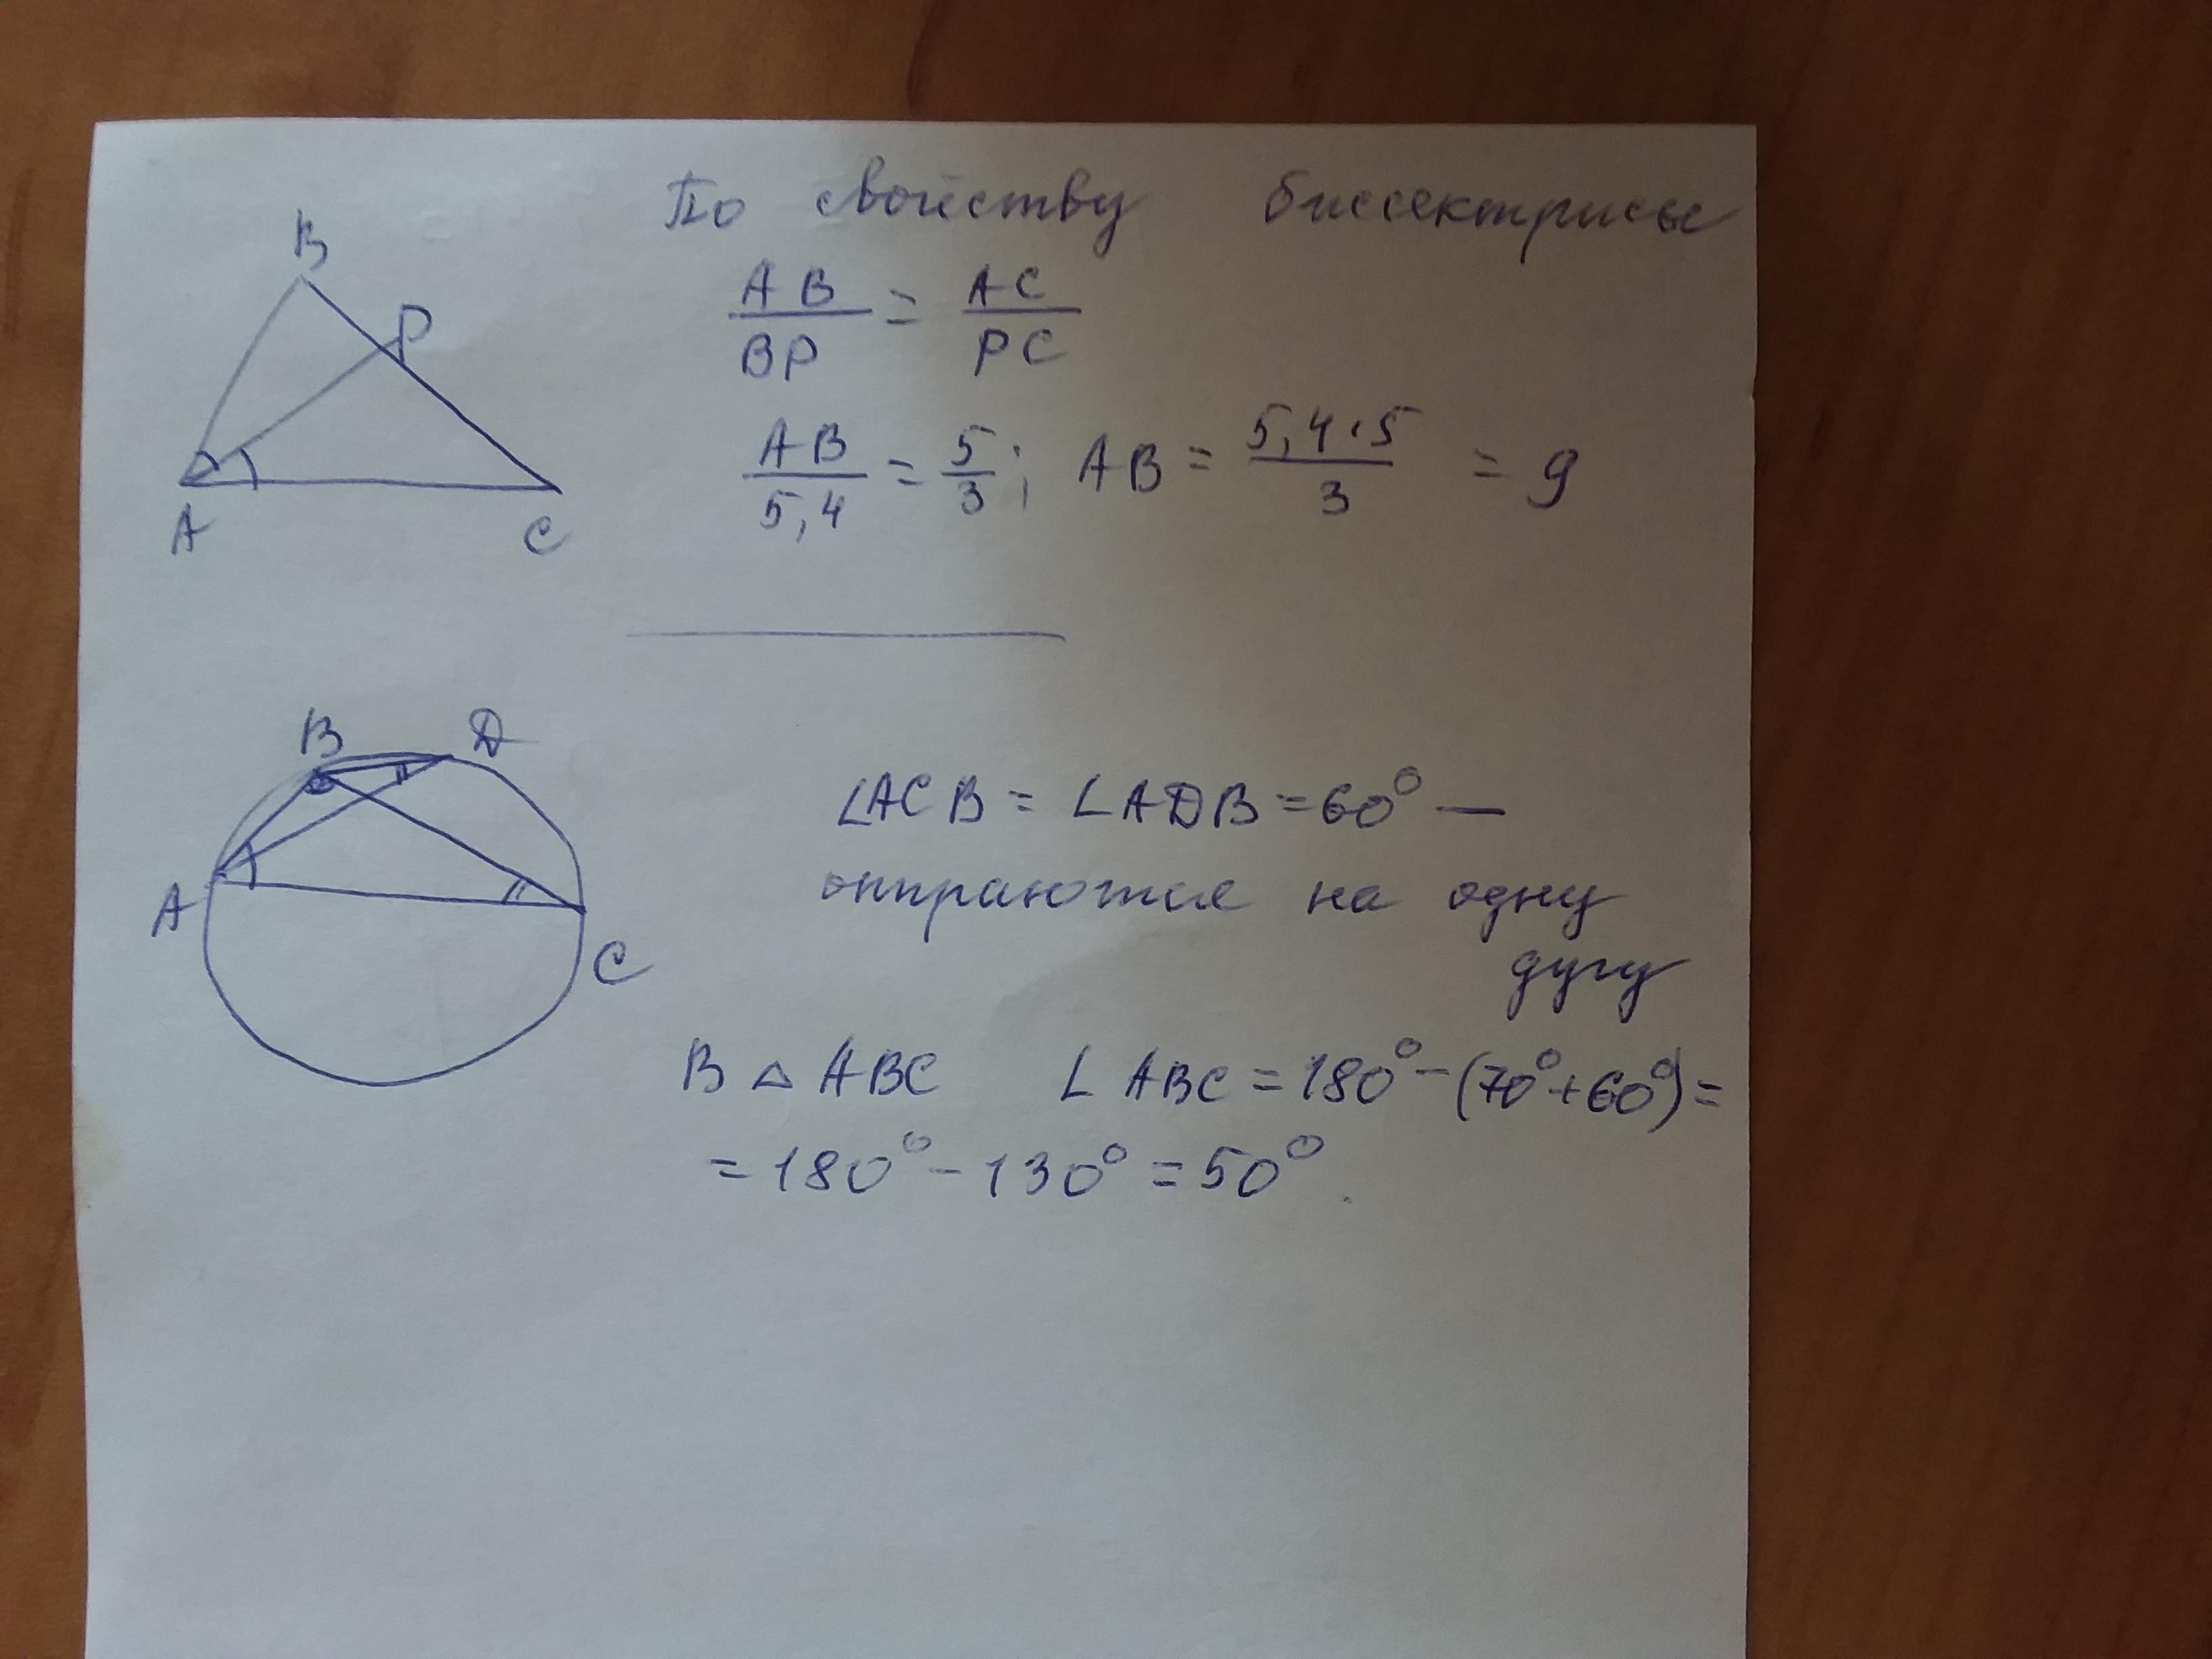 По свойству биссектрисы
B
P
A
C
AB/BP = AC/PC
AB/5,4 = 5/3; AB = 5,4·5/3 = 9
B
D
A
C
∠ACB = ∠ADB = 60° —
опираются на одну
дугу
В △ ABC ∠ ABC = 180° - (70° + 60°) =
= 180° - 130° = 50°.